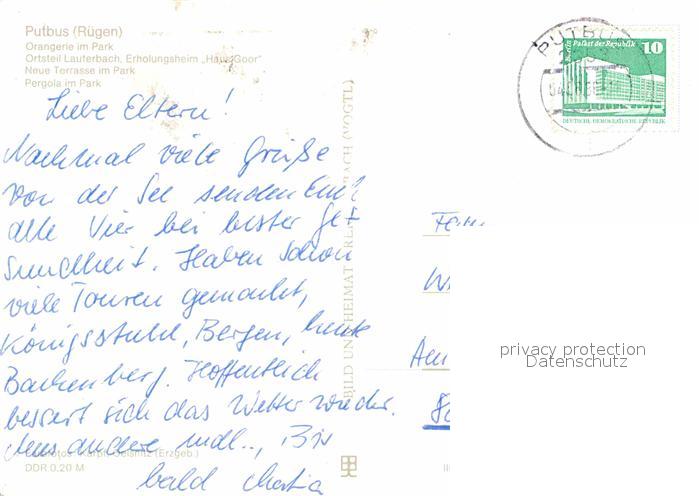 Putbus (Rügen)
Orangerie im Park
Ortsteil Lauterbach, Erholungsheim „Haus Goor"
Neue Terrasse im Park
Pergola im Park
Liebe Eltern!
Nochmal viele Grüße
von der See senden Euch
alle Vier bei bester Ge-
sundheit. Haben schon
viele Touren gemacht,
Königsstuhl, Bergen, heute
Hoffentlich
bessert sich das Wetter wieder.
Alles andere mdl., Bis
bald
(Erzgeb.)
DDR 0,20 M
BILD UND HEIMAT (VOGTL)
PUTBUS
Berlin Palast der Republik 10
DEUTSCHE DEMOKRATISCHE REPUBLIK
privacy protection
Datenschutz